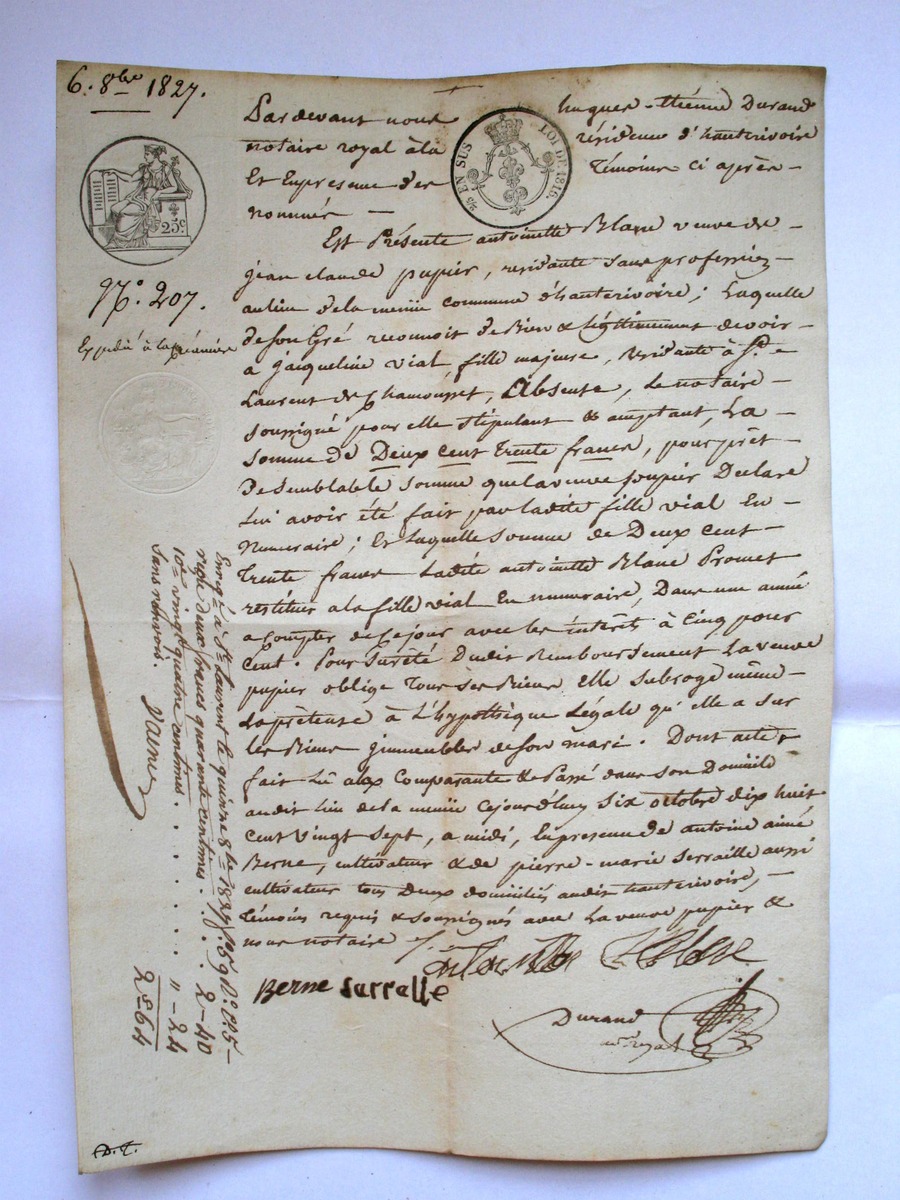 6. 8bre 1827.
Pardevant nous hugues-Etienne Durand
notaire royal à la résidence d'hauterivoire
Et En presence des Témoins ci après-
nommés —
EN SUS
LOI DE 1816.
25c
N.o 207.
Expédié à la créancière
Est Présente antoinette Blanc veuve de -
jean claude pupier, residante sans profession-
au lieu de la commune d'hauterivoire; Laquelle
de son Gré reconnoit de Bien & légitimement devoir-
a jacqueline vial, fille majeure, residante à St-
Laurent de Chamousset, Absente, le notaire-
soussigné pour elle stipulant & acceptant, La -
somme de Deux cent trente francs, pour prêt-
de semblable somme que la veuve pupier Declare
lui avoir été fait par ladite fille vial En-
Numeraire; Et laquelle somme de Deux cent-
trente francs Ladite antoinette Blanc Promet
restituer a la fille vial En numeraire, Dans une année
a compter de ce jour avec les intérêts à Cinq pour
cent. Pour Sureté Dudit Remboursement La veuve
pupier oblige Tous ses Biens Elle subroge même-
La prêteuse à L'hypothèque Légale qu'elle a sur
les Biens jmmeubles de son mari. Dont acte,
fait Lu a la Comparante & Passé dans son Domicile
audit lieu de la Cejourd'huy six octobre dix huit
cent vingt sept, a midi, En presence de antoine aimé
Berne, cultivateur & de pierre-marie serraille aussi
cultivateur tous Deux domiciliés audit hauterivoire, -
témoins requis & soussignés avec La veuve pupier &
nous notaire
Berne sarralle
Durand
nre royal
Enrgé à St Laurent le quinze 8bre 1827
reçu deux francs quarante centimes. 2-40
10e vingt quatre centimes. . . . . . . " - 24
sans renvoi. 2.64